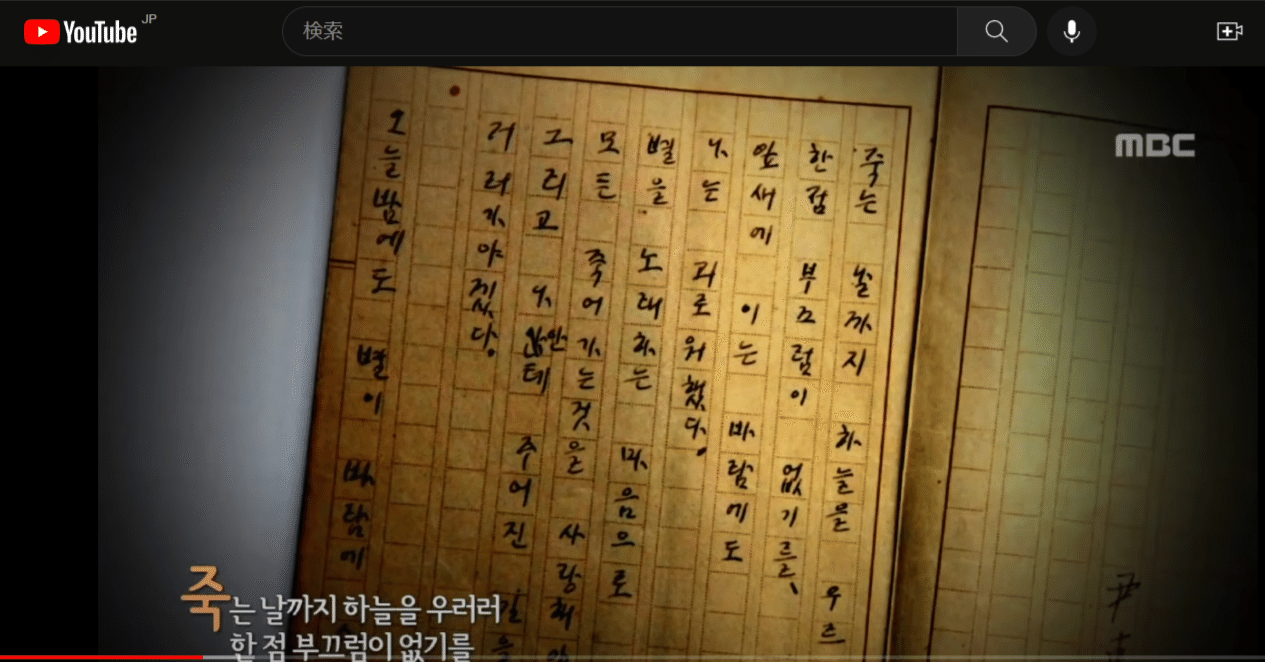 YouTube JP
検索
MBC
죽는 날까지 하늘을 우르
한점 부끄럼이 없기를、
잎새에 이는 바람에도
나는 괴로워했다.
별을 노래하는 마음으로
모든 죽어가는것을 사랑해
그리고 나안테 주어진 길을
거러가야겠다.
오늘밤에도 별이 바람에
尹
죽는 날까지 하늘을 우러러
한 점 부끄럼이 없기를